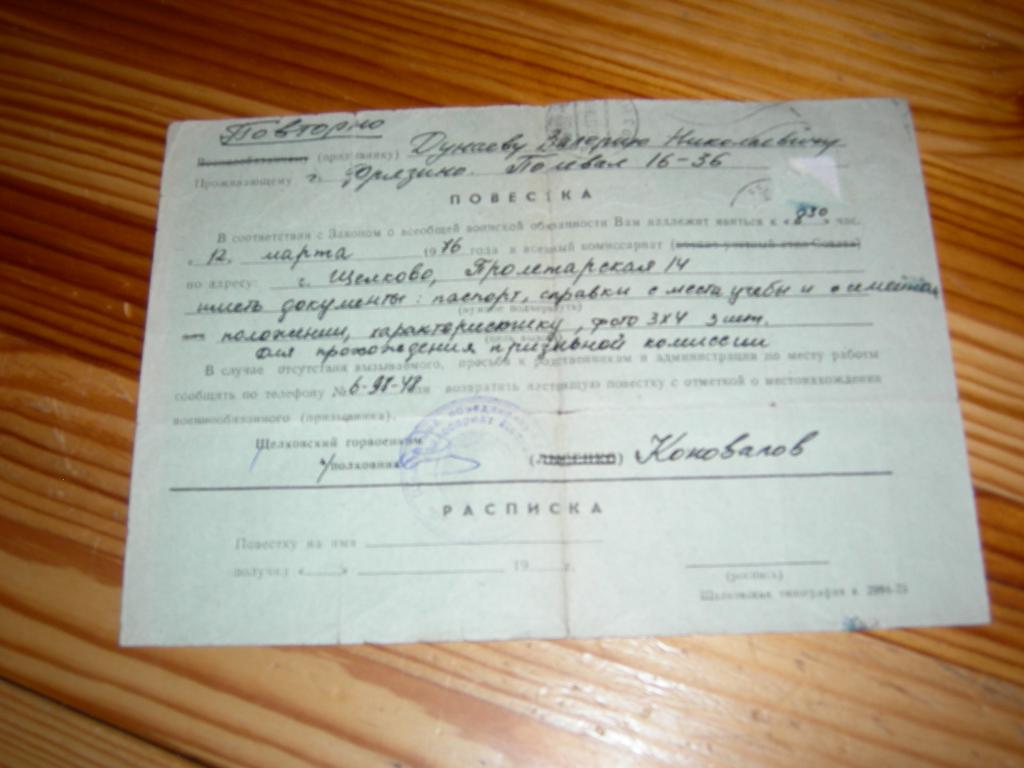 Повторно
Военнообязанному (призывнику) Дунаеву Валерию Николаевичу
Проживающему г. Фрязино. Полевая 16-36
ПОВЕСТКА
В соответствии с Законом о всеобщей воинской обязанности Вам надлежит явиться к «8 30» час.
„12„ марта 1976 года в военный комиссариат
по адресу: г. Щелково, Пролетарская 14
иметь документы: паспорт, справки с места учебы и о семейном
(нужное подчеркнуть)
положении, характеристику, фото 3х4 3 шт.
для прохождения призывной комиссии
В случае отсутствия вызываемого, просьба к родственникам и администрации по месту работы
сообщить по телефону № 6-98-48 или возвратить настоящую повестку с отметкой о местонахождении
военнообязанного (призывника).
Щелковский горвоенком
п/полковник (ЛЫСЕНКО) Коновалов
РАСПИСКА
Повестку на имя
получил « » 19 г.
(роспись)
Щелковская типография з. 2994-75